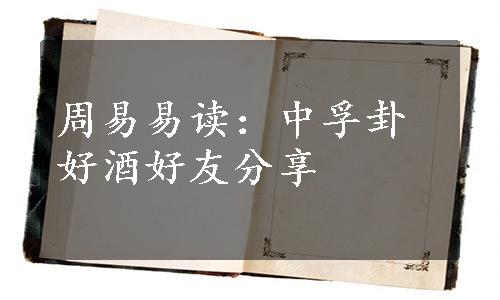 周易易读：中孚卦
好酒好友分享